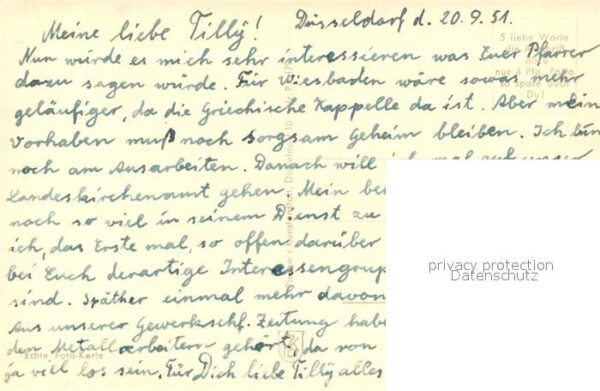 Düsseldorf d. 20.9.51.
Meine liebe Tilly!
Nun würde es mich sehr interessieren was Euer Pfarrer
dazu sagen würde. Für Wiesbaden wäre sowas mehr
geläufiger, da die Griechische Kappelle da ist. Aber mein
Vorhaben muß noch sorgsam Geheim bleiben. Ich bin
noch am Ausarbeiten. Danach will ich mal auf unser
Landeskirchenamt gehen. Mein
noch so viel in seinem Dienst zu
ich, das Erste mal, so offen darüber
bei Euch derartige Interessengrup
sind. Späther einmal mehr davon
Aus unserer Gewerkschf. Zeitung habe
den Metallarbeitern gehört, da von
ja viel los sein. Für Dich liebe Tilly alles
5 liebe Worte
nur 4 Pfg.
Du!
Echte Foto-Karte
privacy protection
Datenschutz